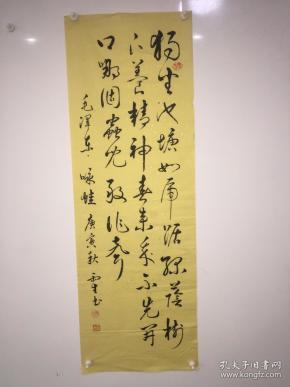 独坐池塘如虎踞绿荫树
下养精神春来我不先开
口哪个虫儿敢作声
毛泽东·咏蛙 庚寅秋 书
孔夫子旧书网